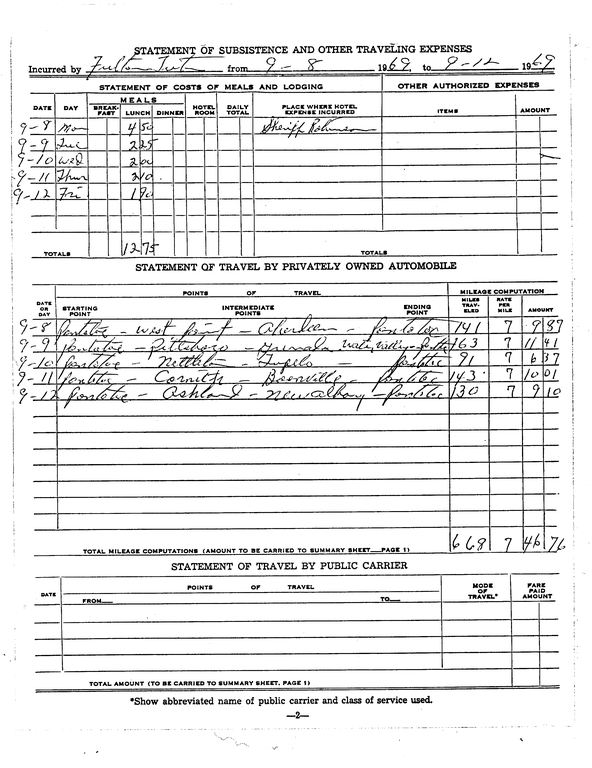 STATEMENT OF SUBSISTENCE AND OTHER TRAVELING EXPENSES
Incurred by Fulton from 9-8 1969, to 9-12 1969
STATEMENT OF COSTS OF MEALS AND LODGING OTHER AUTHORIZED EXPENSES
MEALS
DATE DAY BREAK-FAST LUNCH DINNER HOTEL ROOM DAILY TOTAL PLACE WHERE HOTEL EXPENSE INCURRED ITEMS AMOUNT
9-8 Mon 4 50 Sheriff Robinson
9-9 Tue 2 25
9-10 Wed 2 00
9-11 Thur 2 10
9-12 Fri 1 90
TOTALS 12 75 TOTALS
STATEMENT OF TRAVEL BY PRIVATELY OWNED AUTOMOBILE
POINTS OF TRAVEL MILEAGE COMPUTATION
DATE OR DAY STARTING POINT INTERMEDIATE POINTS ENDING POINT MILES TRAV-ELED RATE PER MILE AMOUNT
9-8 Pontotoc - West Point - Aberdeen - Pontotoc 141 7 9 87
9-9 Pontotoc - Pittsboro - Grenada Water Valley - Pontotoc 163 7 11 41
9-10 Pontotoc - Nettleton - Tupelo - Pontotoc 91 7 6 37
9-11 Pontotoc - Corinth - Booneville - Pontotoc 143 7 10 01
9-12 Pontotoc - Ashland - New Albany - Pontotoc 130 7 9 10
TOTAL MILEAGE COMPUTATIONS (AMOUNT TO BE CARRIED TO SUMMARY SHEET—PAGE 1) 668 7 46 76
STATEMENT OF TRAVEL BY PUBLIC CARRIER
DATE POINTS OF TRAVEL MODE OF TRAVEL* FARE PAID AMOUNT
FROM TO
TOTAL AMOUNT (TO BE CARRIED TO SUMMARY SHEET, PAGE 1)
*Show abbreviated name of public carrier and class of service used.
—2—